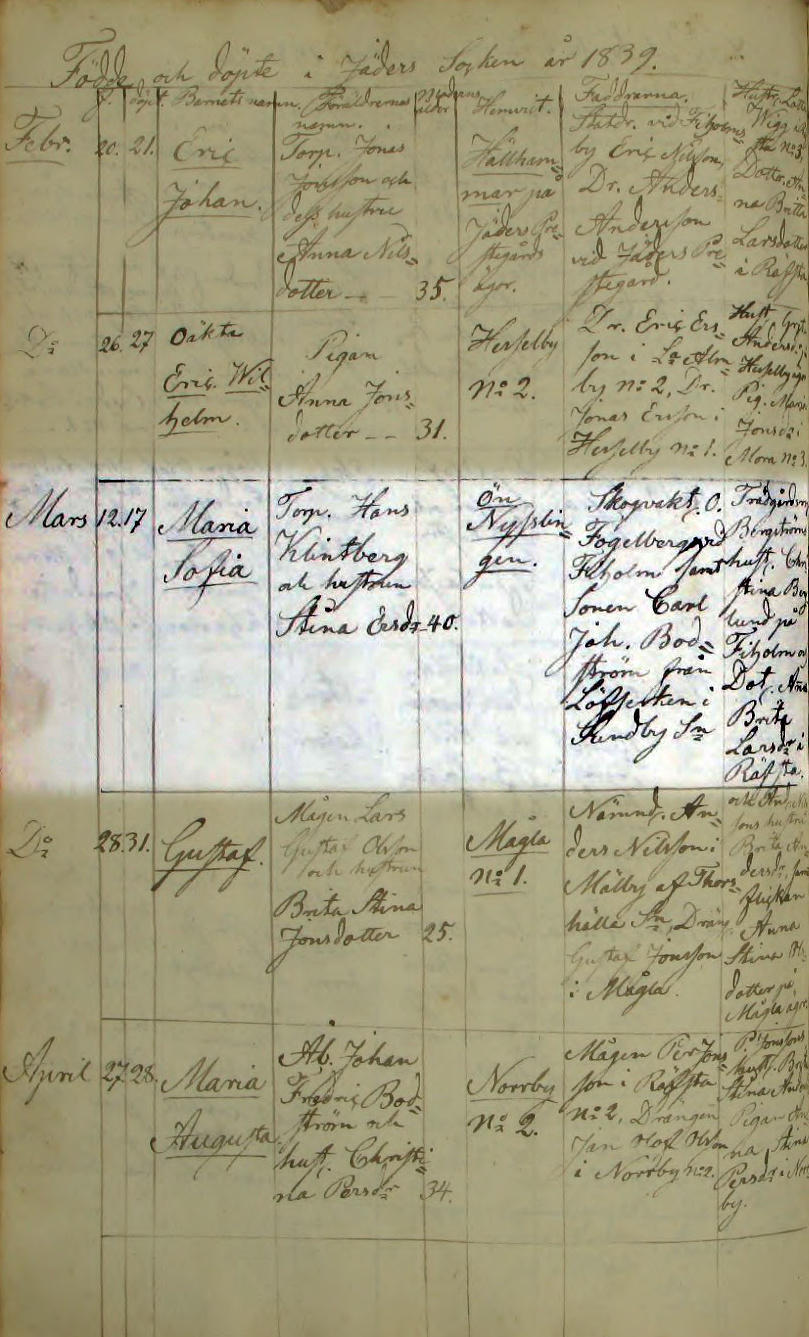 Födde och döpte i Jäders Socken år 1839.
f. döpt. Barnets namn. Föräldrarnas namn. Modrens ålder Hemvist. Faddrarna.
Febr. 20. 21.
Eric
Johan.
Torp. Jonas
Jonsson och
dess hustru
Anna Nils=
dotter - - 35.
Hällham=
mar på
Jäders Pre=
stegårds
ägor.
Statdr. vid Fiholms
by Eric Nilsson,
Dr. Anders
Andersson
vid Jäders Pre=
stegård.
Hustr. Lotta
Wigg
N:o 3,
Dotter. An=
na Britta
Larsdotter
i Räfsta
D:o 26. 27
Oäkta
Eric Wil=
helm.
Pigan
Anna Jons=
dotter - - 31.
Herselby
N:o 2.
Dr. Eric Ers=
son i L:a Alm=
by n:o 2, Dr.
Jonas Ersson i
Herselby n:o 1.
Hust.
Andersdr i
Herselby
Pig. Maria
Jonsdr i
Mora N:o 3
Mars 12. 17
Maria
Sofia
Torp. Hans
Klintberg
och hustrun
Stina Ersdr 40.
Ön
Nysslin=
gen.
Skogvakt. O.
Fogelberg vid
Fiholm samt
Sonen Carl
Joh. Bod=
ström från
i
Sundby Sn
Trädgårdsm
Bergströms
hust. Chri
stina Ber
lund på
Fiholm o
Dot. Anna
Brita
Larsdr i
Räfsta.
D:o 28. 31.
Gustaf.
Mågen Lars
Gustaf Olsson
och hustrun
Brita Stina
Jonsdotter 25.
Mågla
N:o 1.
Nämnd. An=
ders Nilsson i
Mälby af Thors=
hälla Sn, Dräng
Gustaf Jonsson
i Mågla.
och And. Nils
sons hustru
Brita An
dersdr, samt
flickan
Anna
Stina
dotter på
Mågla ägor
April 27. 28.
Maria
Augusta
Åb. Johan
Fredric Bod=
ström och
hust. Christi=
na Persdr 34.
Norrby
N:o 2.
Mågen Per Jons
son i Räfsta
N:o 2, Drängen
Jan Olof Olsson
i Norrby n:o 2.
P. Jonssons
hust. Brita
Stina Anders
Pigan An
na Stina
Persdr i Norr
by.